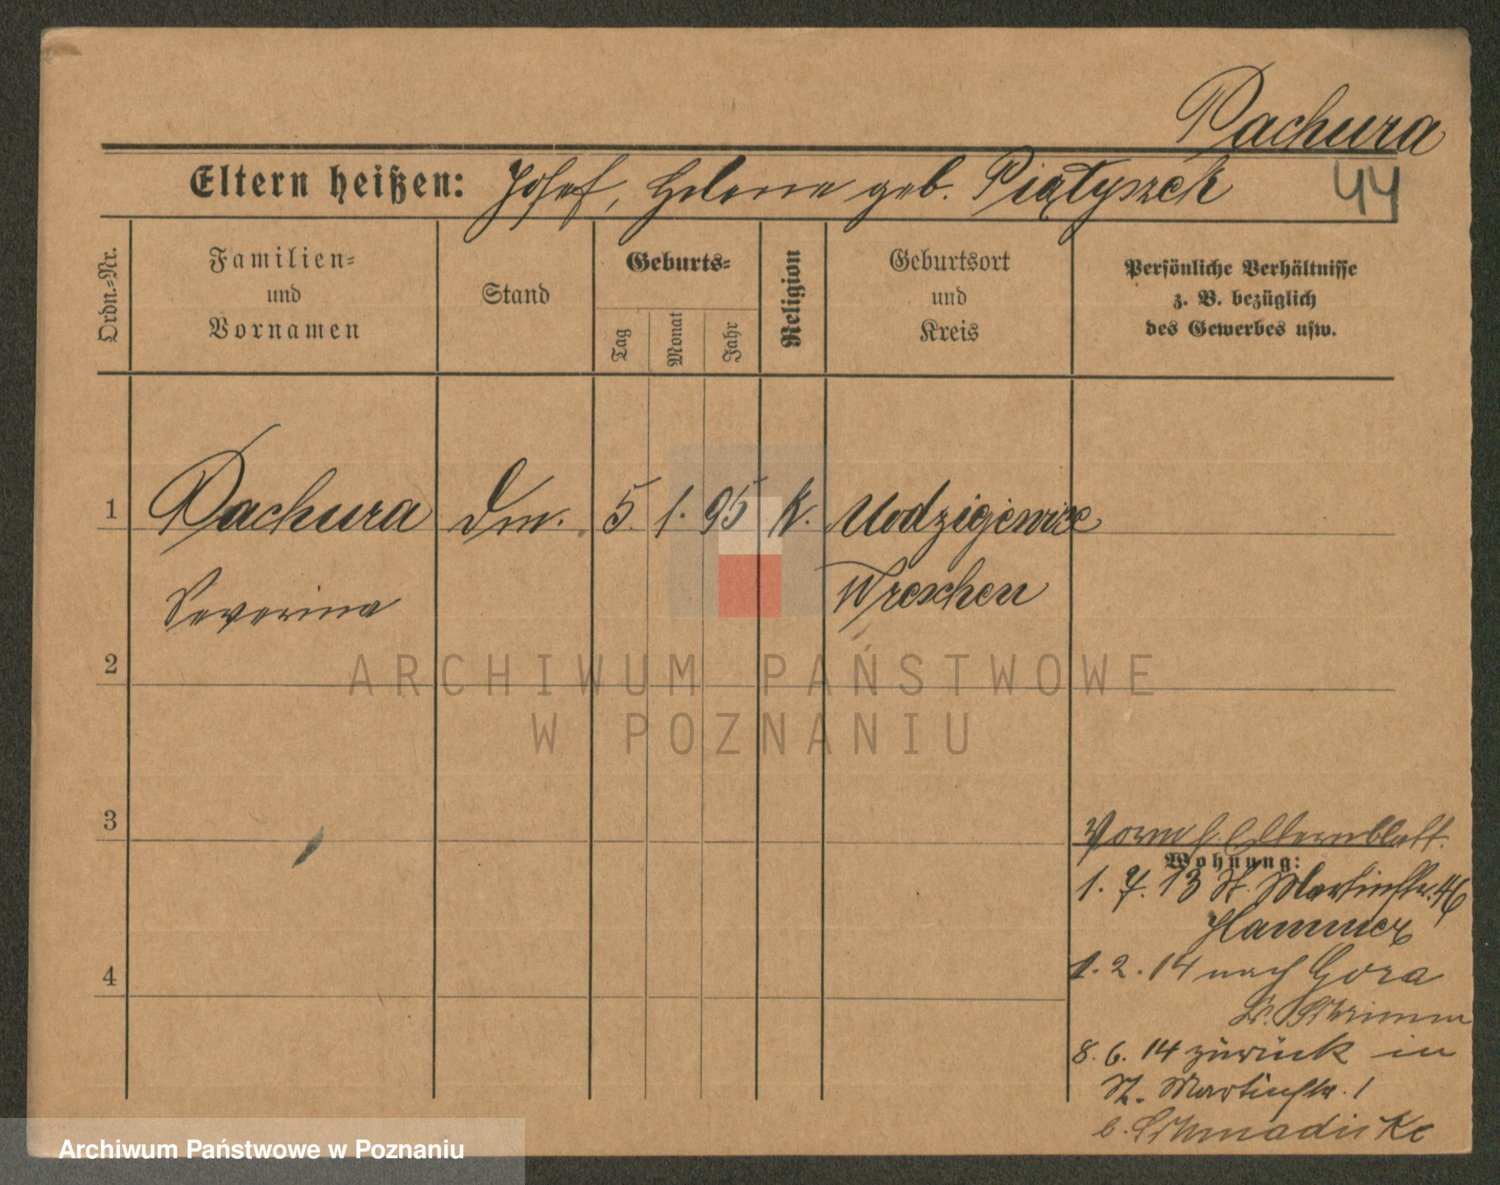 Pachura
Eltern heißen: Josef, Helene geb. Piątyszek
44
Ordn.-Nr.
Familien-
und
Vornamen
Stand
Geburts-
Tag
Monat
Jahr
Religion
Geburtsort
und
Kreis
Persönliche Verhältnisse
z. B. bezüglich
des Gewerbes usw.
1 Pachura 5. 1. 95 K.
Severina Wreschen
2
ARCHIWUM PAŃSTWOWE
W POZNANIU
3
Elternblatt.
Wohnung:
1. 7. 13 St. Martinstr. 46
Hammer
4
1. 2. 14 nach Gora
Kr. Schrimm
8. 6. 14 zurück in
St. Martinstr. 1
b.
Archiwum Państwowe w Poznaniu